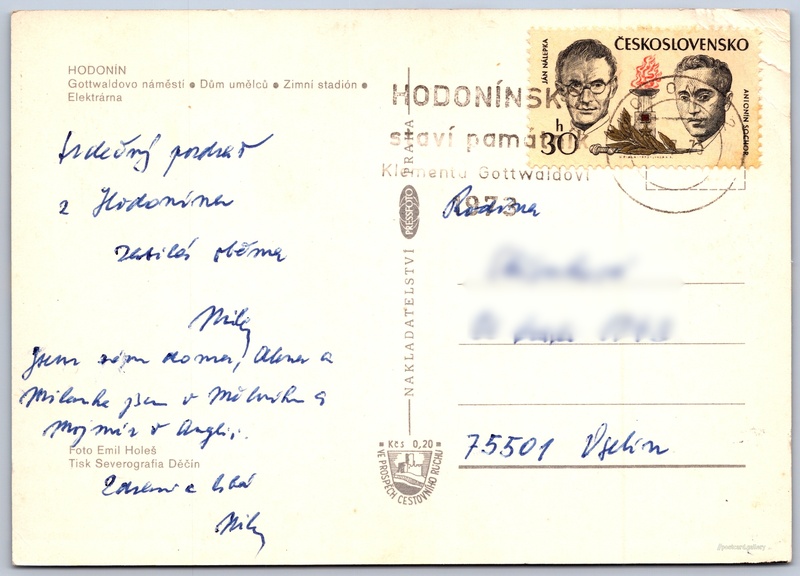 HODONÍN
Gottwaldovo náměstí ● Dům umělců ● Zimní stadión ●
Elektrárna
Srdečný pozdrav
z Hodonína
oběma
Jsem sám doma, a
Milenka jsem v Mělníku a
Mojmír v Anglii.
Foto Emil Holeš
Tisk Severografia Děčín
Zdraví a líbá
NAKLADATELSTVÍ PRESSFOTO PRAHA
Kčs 0,20
VE PROSPĚCH CESTOVNÍHO RUCHU
HODONÍNSK
staví památník
Klementu Gottwaldovi
1973
JÁN NÁLEPKA
ČESKOSLOVENSKO
ANTONÍN SOCHOR
30 h
Rodina
75501 Vsetín